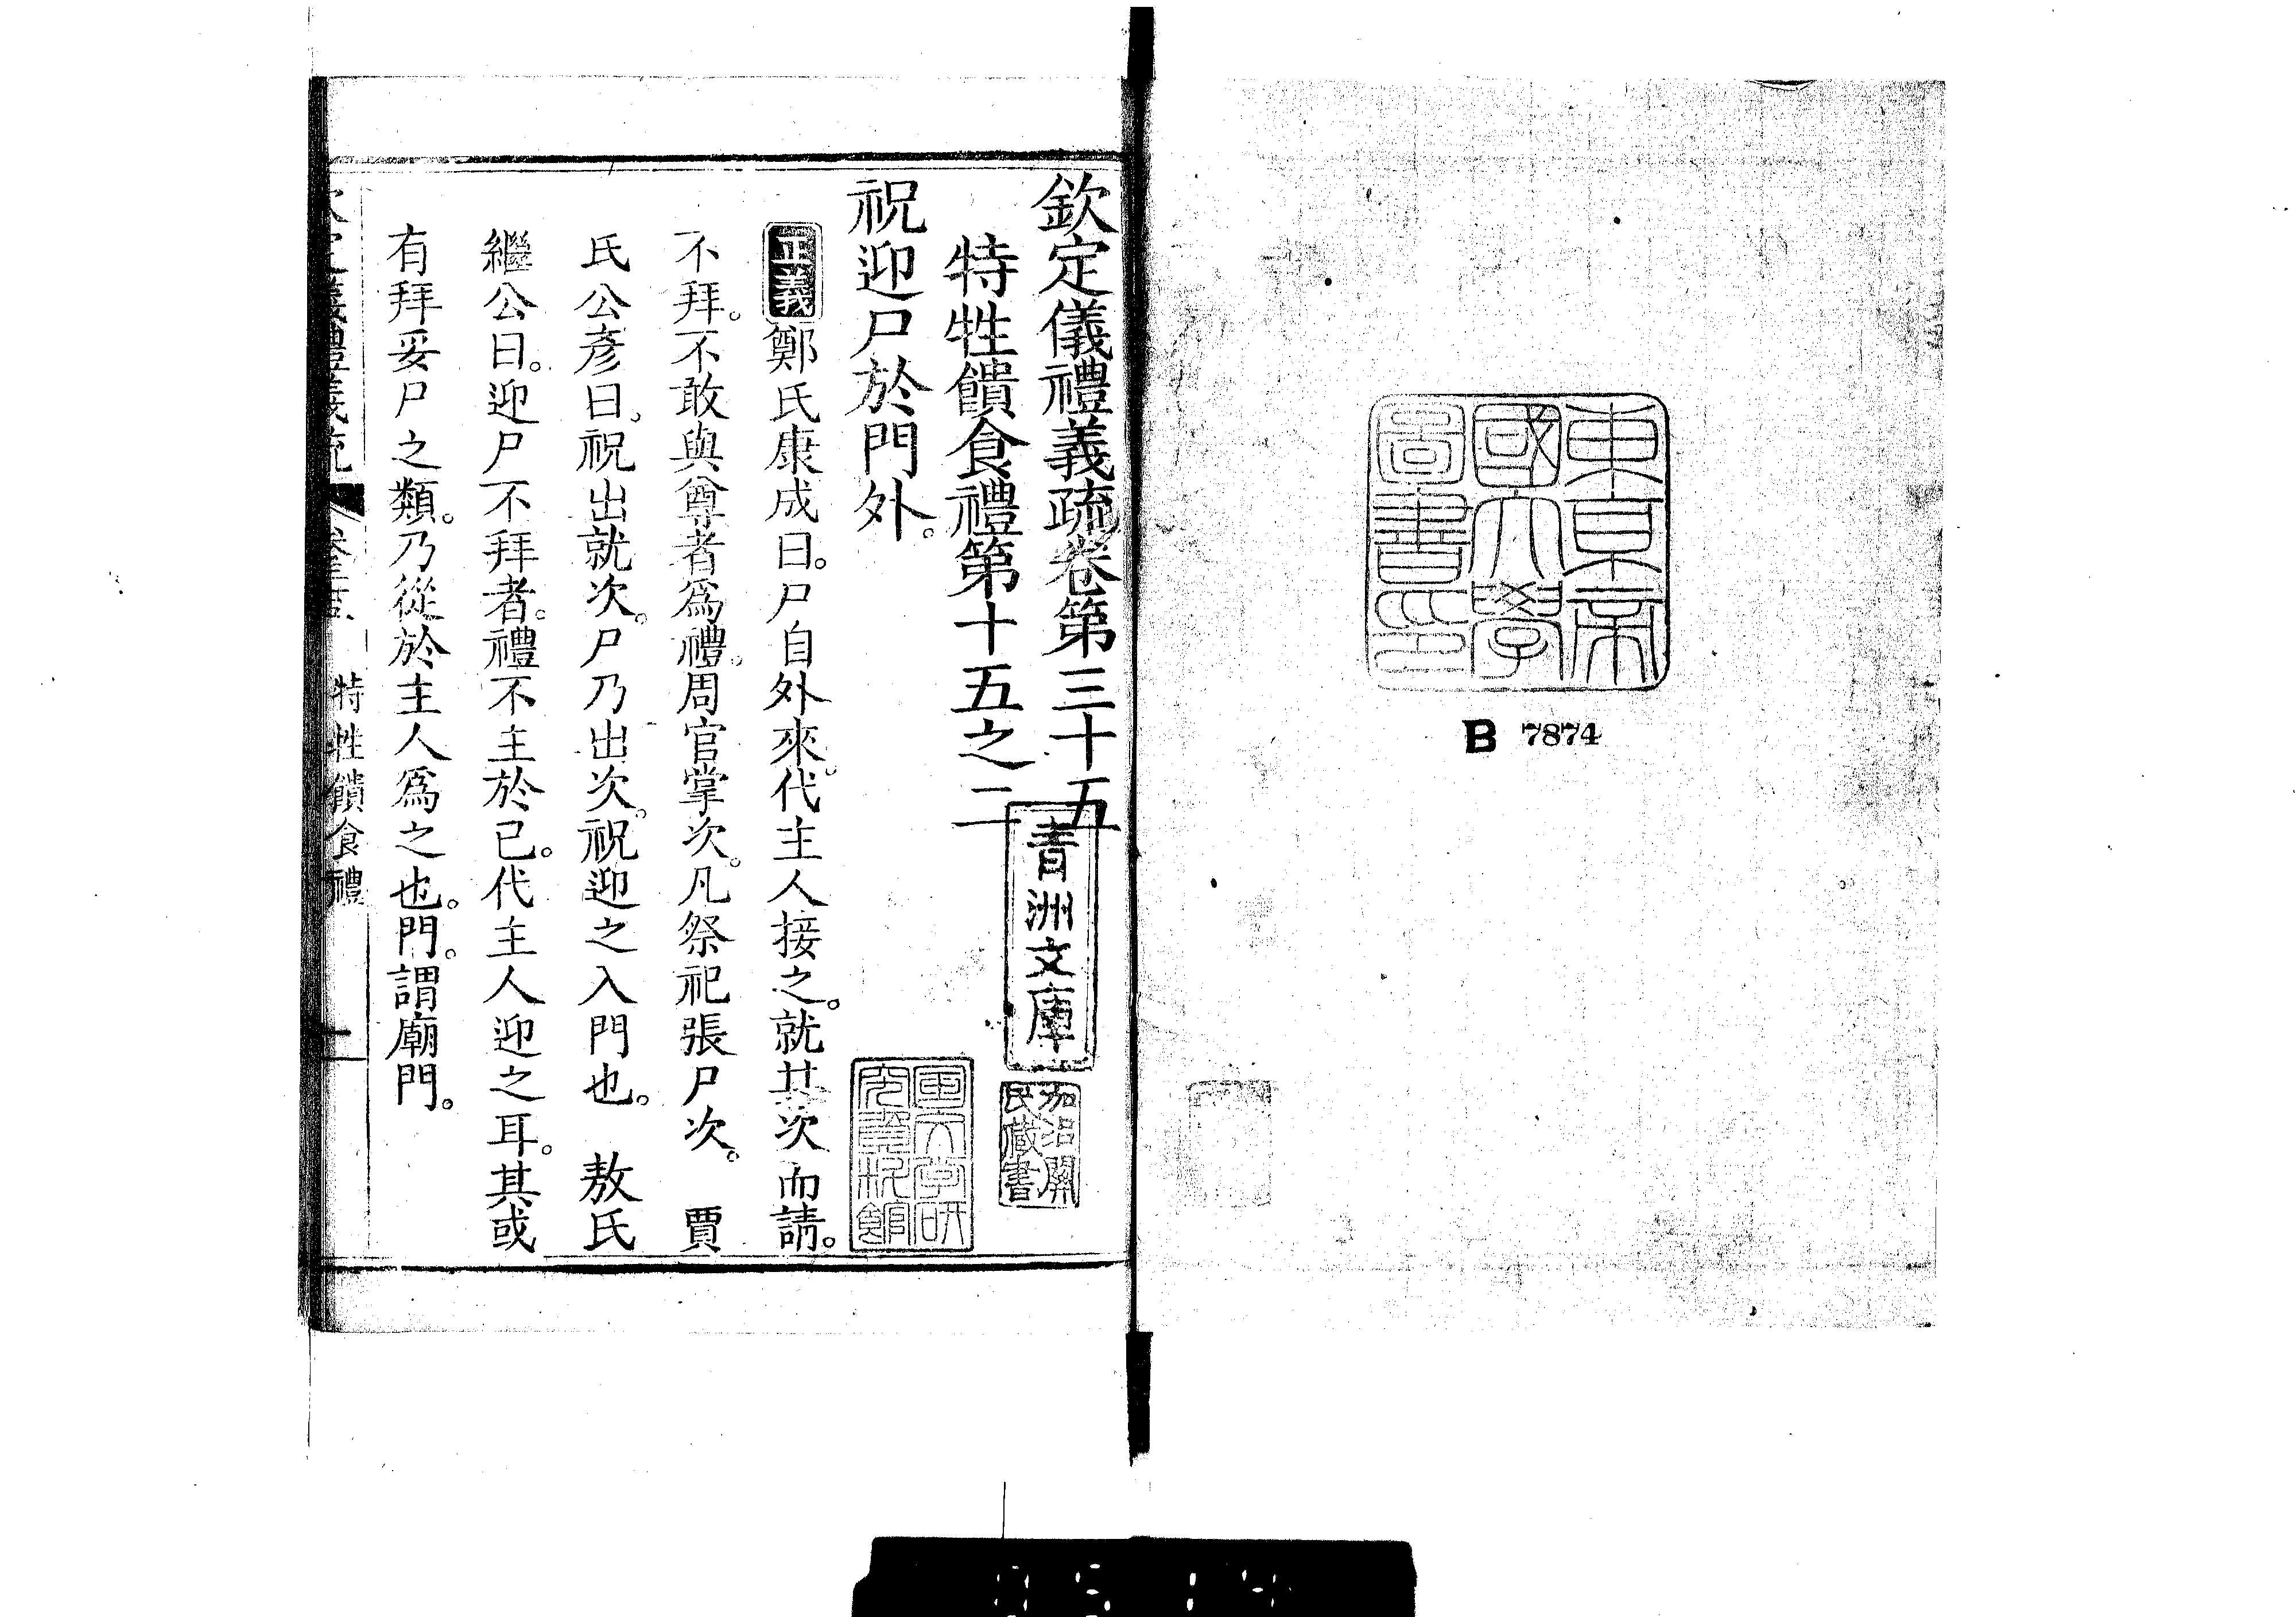 東京帝
國大學
圖書印
B 7874
欽定儀禮義疏卷第三十五
特牲饋食禮第十五之二
青洲文庫
加沼關
氏藏書
祝迎尸於門外。
正義鄭氏康成曰。尸自外來。代主人接之。就其次而請。
不拜。不敢與尊者爲禮。周官掌次。凡祭祀張尸次。 賈
氏公彥曰。祝出就次。尸乃出次。祝迎之入門也。 敖氏
繼公曰。迎尸不拜者。禮不主於已。代主人迎之耳。其或
有拜妥尸之類。乃從於主人爲之也。門。謂廟門。
特牲饋食禮